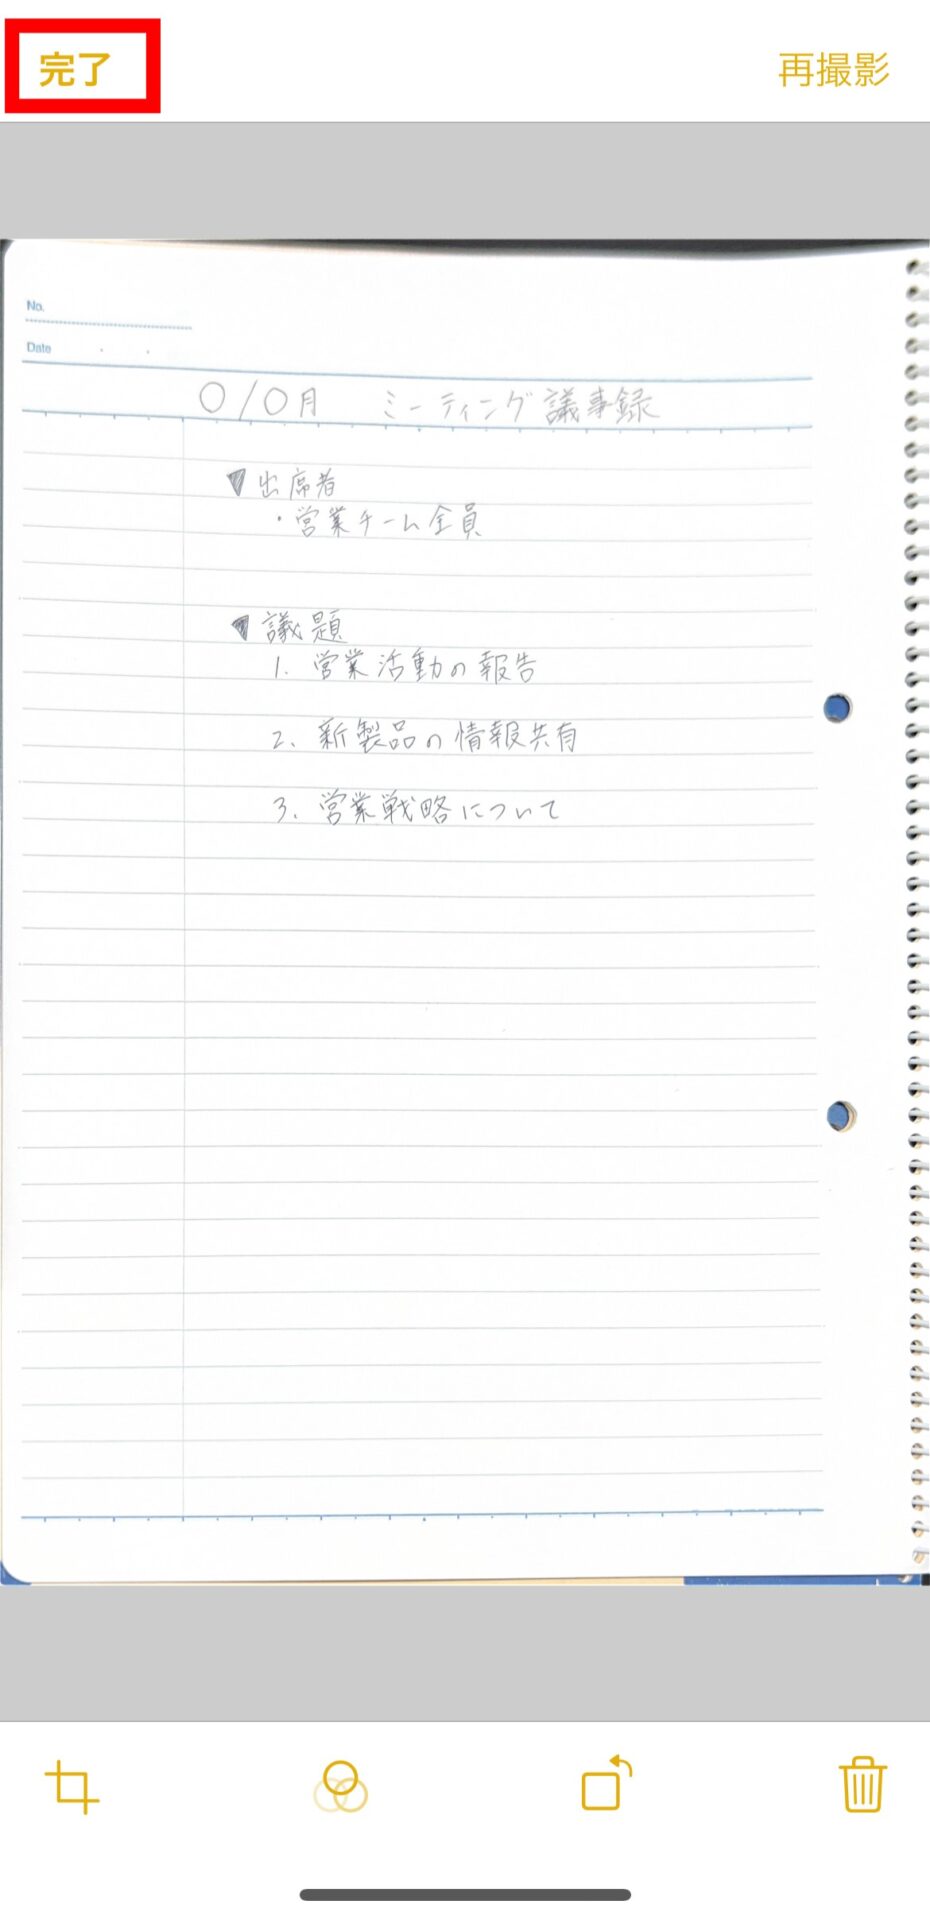 完了
再撮影
No.
Date
○/○月 ミーティング議事録
▼出席者
・営業チーム全員
▼議題
1. 営業活動の報告
2. 新製品の情報共有
3. 営業戦略について